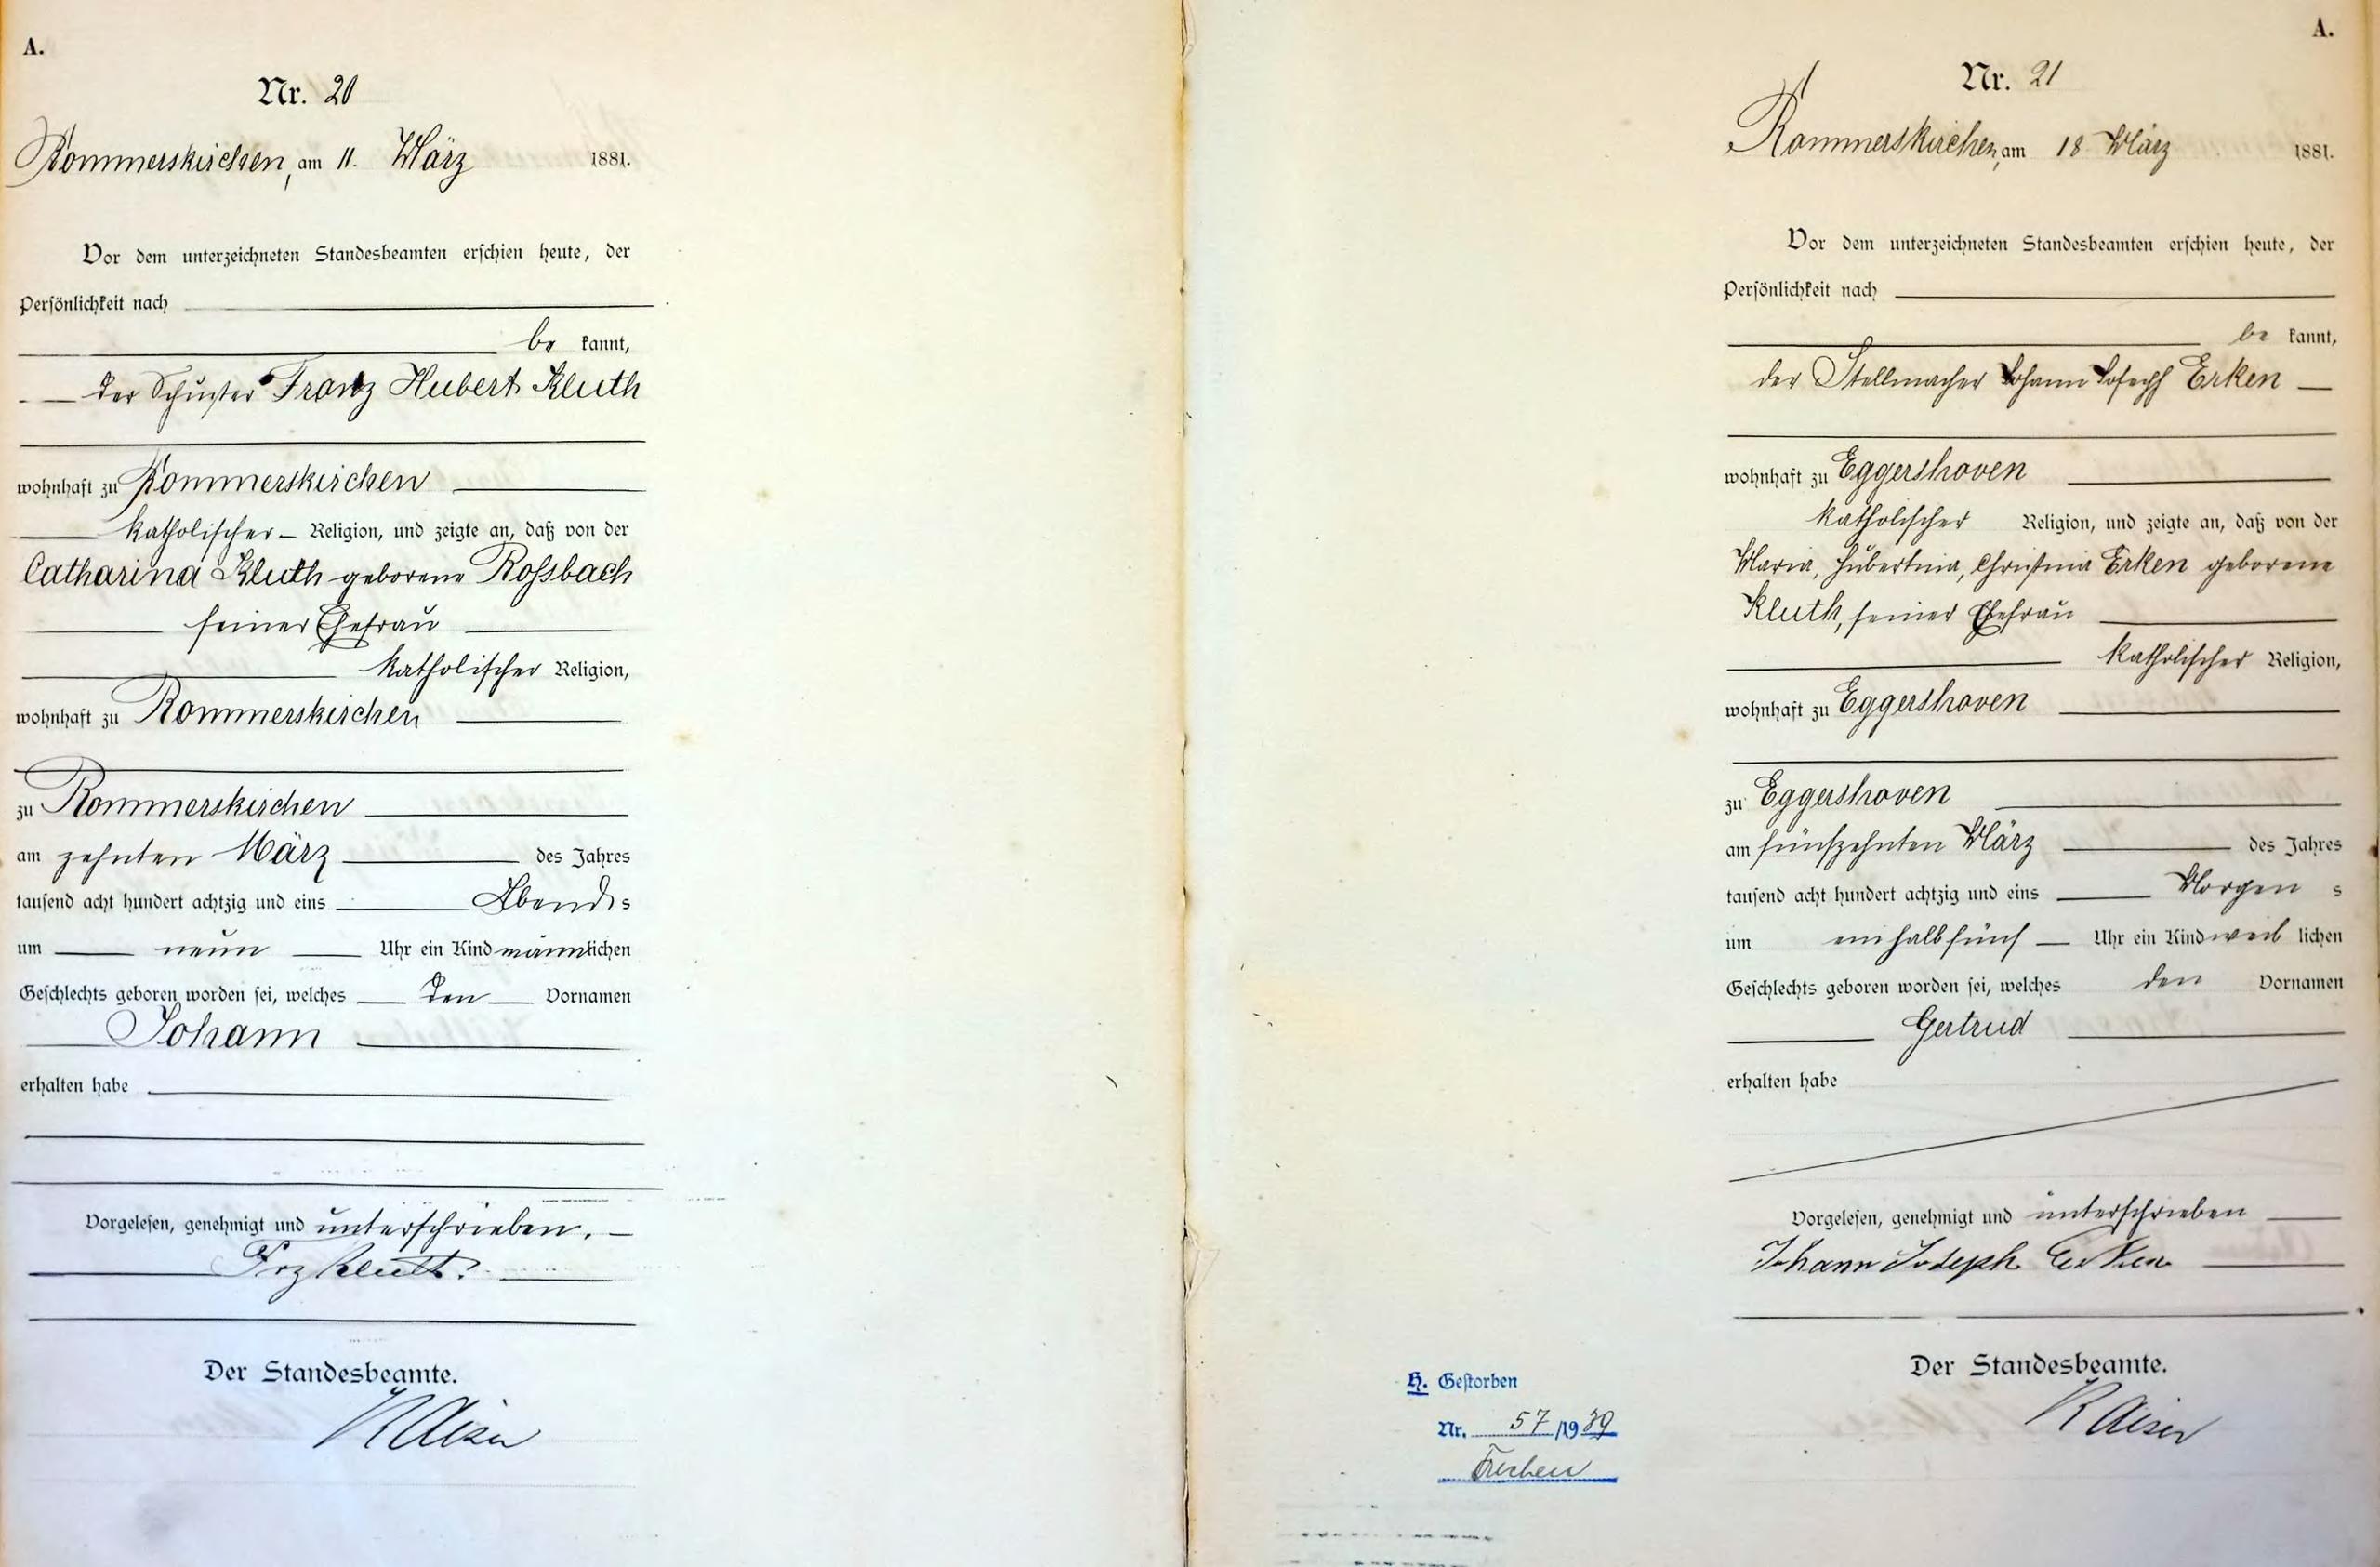 A.
Nr. 20
Rommerskirchen, am 11. März 1881.
Vor dem unterzeichneten Standesbeamten erschien heute, der
Persönlichkeit nach
be kannt,
der Schuster Franz Hubert Kluth
wohnhaft zu Rommerskirchen
katholischer Religion, und zeigte an, daß von der
Catharina Kluth geborene Rossbach
seiner Ehefrau
katholischer Religion,
wohnhaft zu Rommerskirchen
zu Rommerskirchen
am zehnten März des Jahres
tausend acht hundert achtzig und eins Abends
um neun Uhr ein Kind männlichen
Geschlechts geboren worden sei, welches den Vornamen
Johann
erhalten habe
Vorgelesen, genehmigt und unterschrieben.
Frz Kluth
Der Standesbeamte.
Kaiser
A.
Nr. 21
Rommerskirchen, am 18 März 1881.
Vor dem unterzeichneten Standesbeamten erschien heute, der
Persönlichkeit nach
be kannt,
der Stellmacher Johann Joseph Erken
wohnhaft zu Eggershoven
katholischer Religion, und zeigte an, daß von der
Maria, Hubertina, Christina Erken geborene
Kluth, seiner Ehefrau
katholischer Religion,
wohnhaft zu Eggershoven
zu Eggershoven
am fünfzehnten März des Jahres
tausend acht hundert achtzig und eins Morgen s
um ein halb fünf Uhr ein Kind weib lichen
Geschlechts geboren worden sei, welches den Vornamen
Gertrud
erhalten habe
Vorgelesen, genehmigt und unterschrieben
Johann Joseph Erken
Der Standesbeamte.
Kaiser
H. Gestorben
Nr. 57 /1939
Frechen